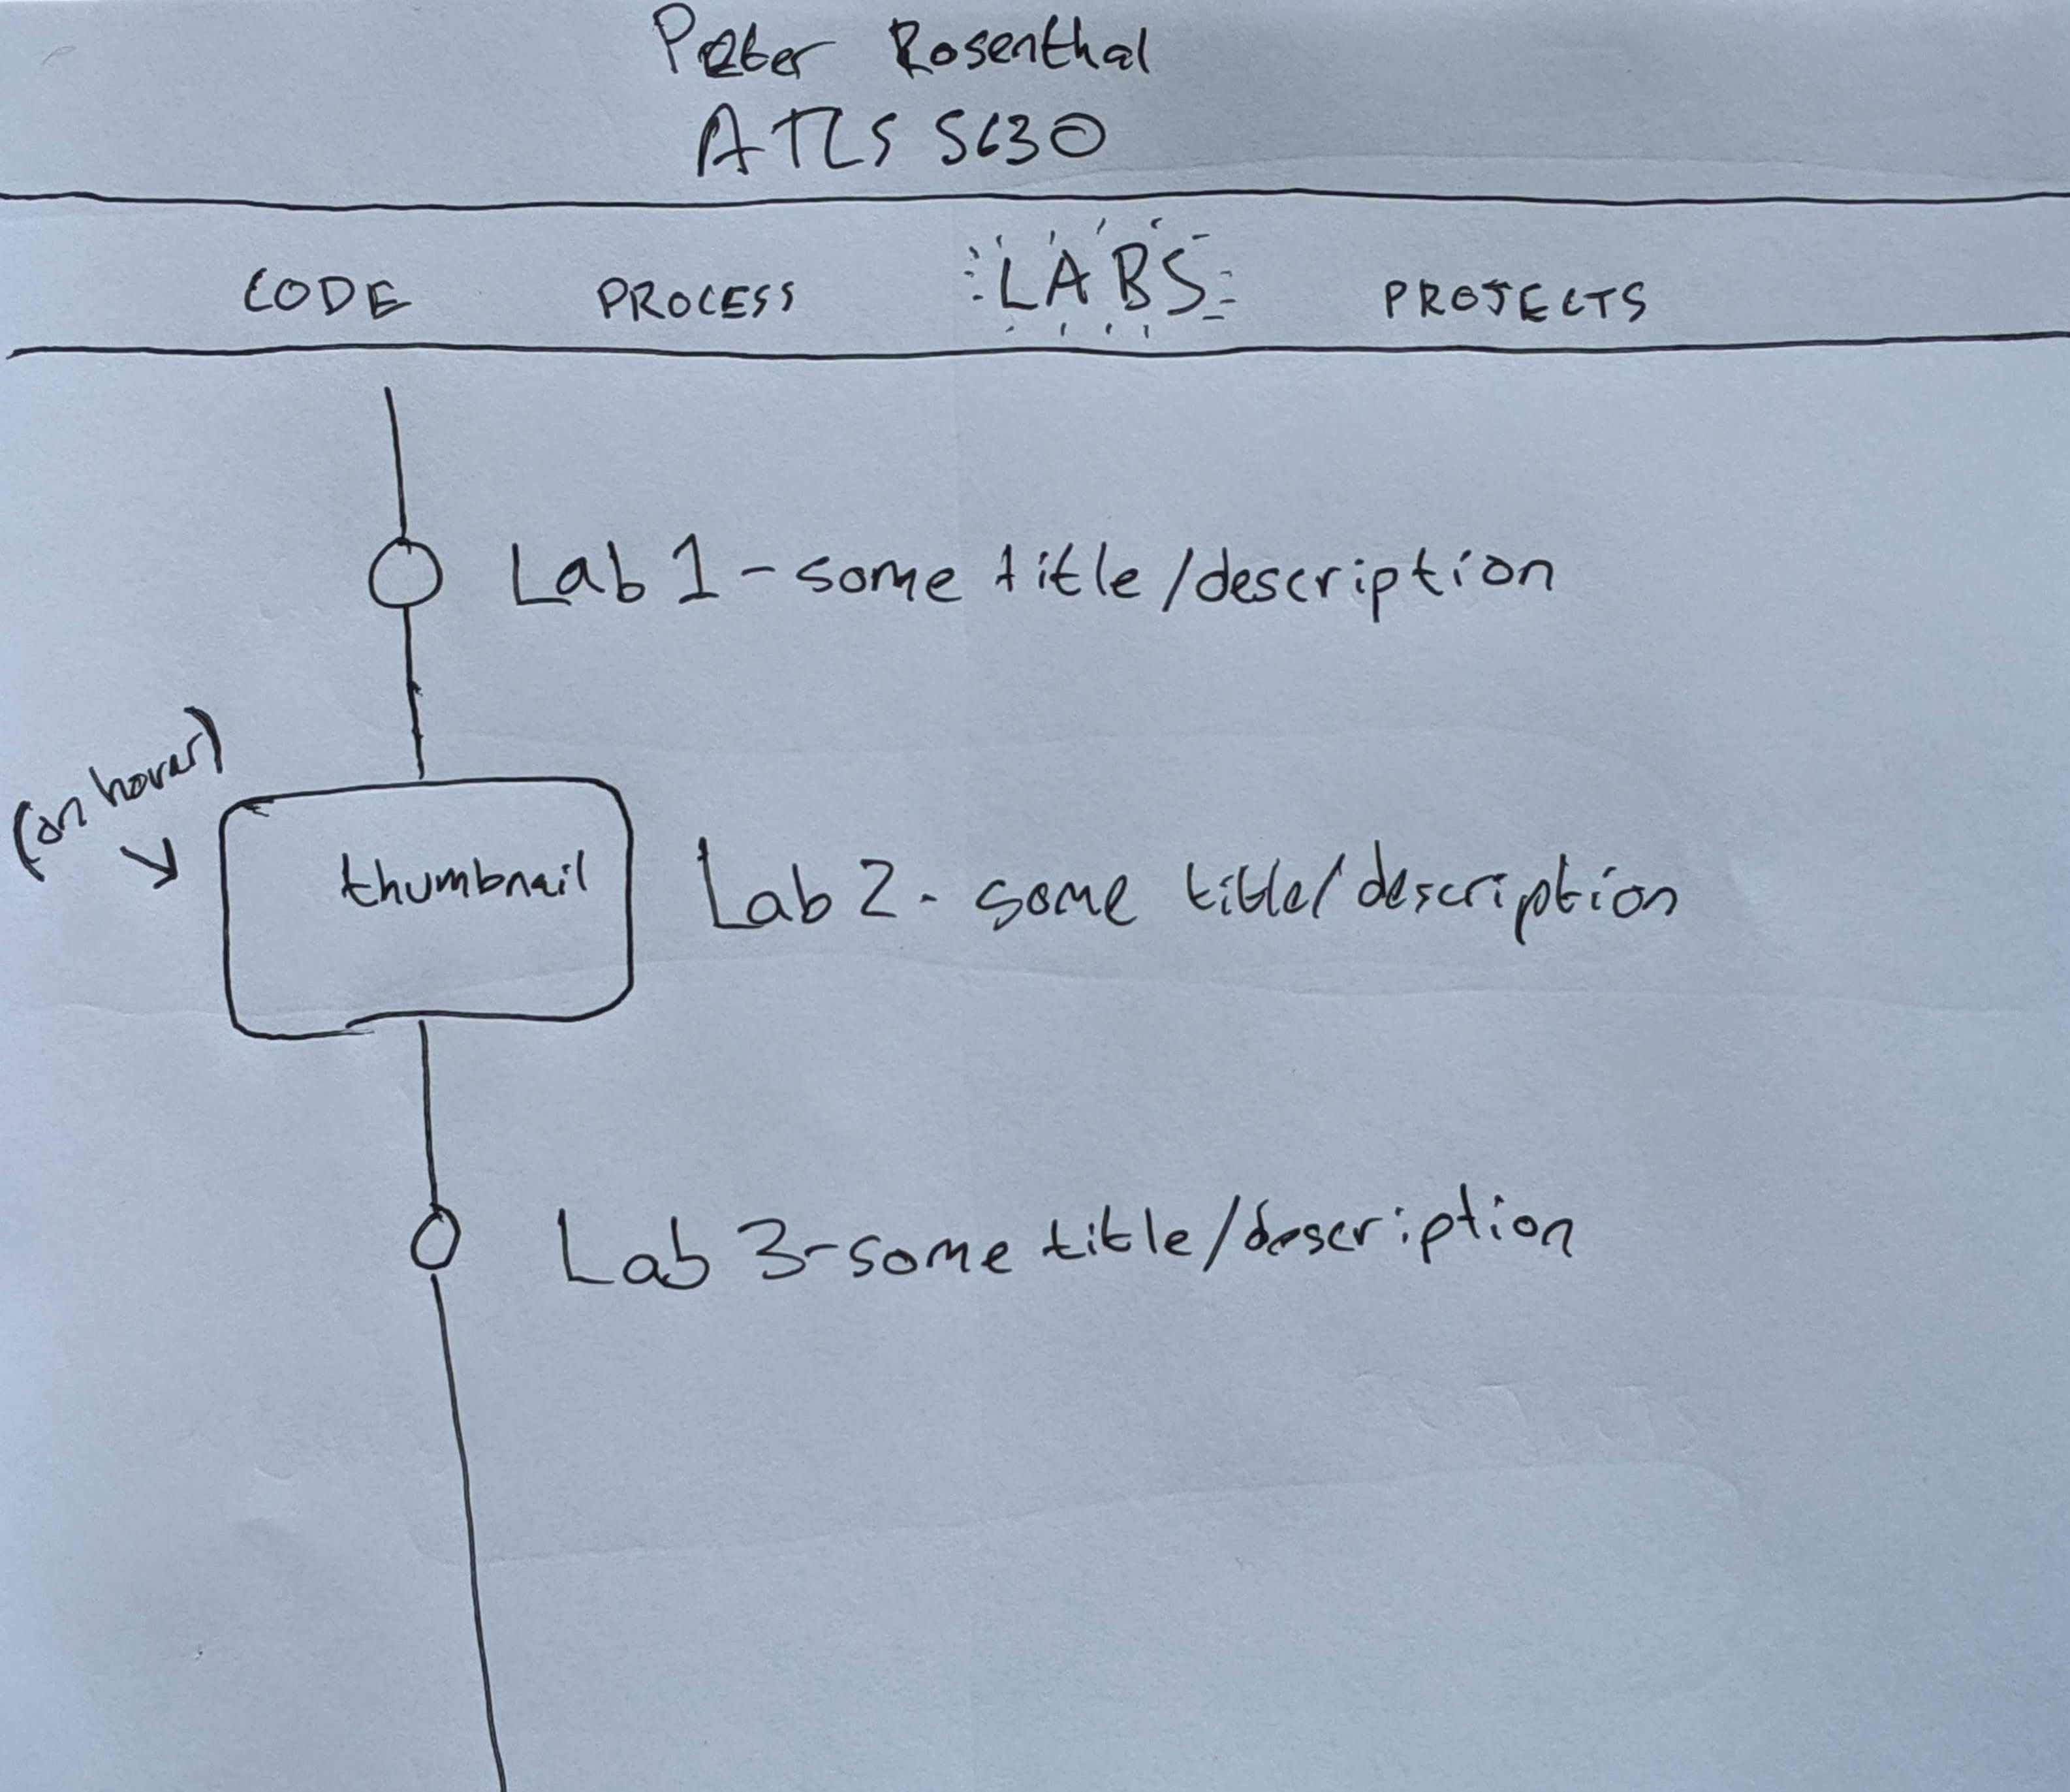 Peter Rosenthal
ATLS 5630
CODE PROCESS LABS PROJECTS
Lab 1 - some title/description
(on hover)
thumbnail
Lab 2 - some title/description
Lab 3 - some title/description